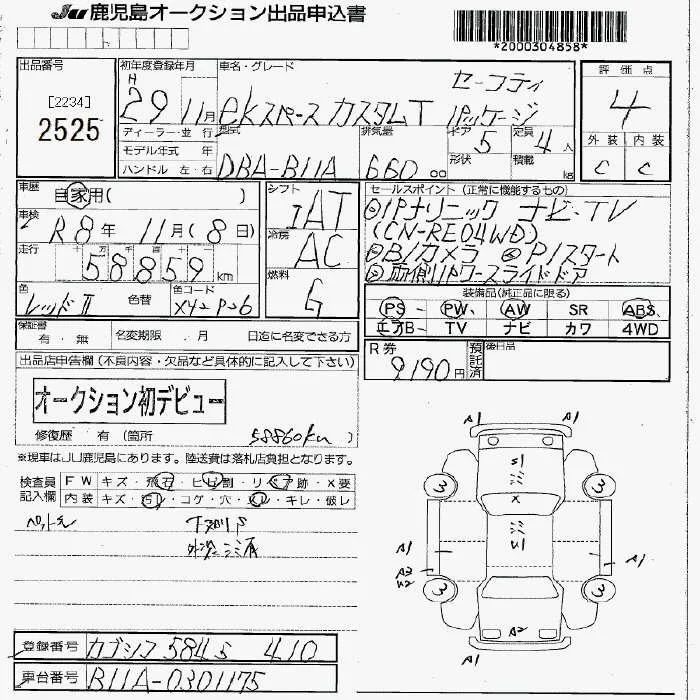 JU 鹿児島オークション出品申込書
*2000304858*
出品番号
[2234]
2525
初年度登録年月
H
29 11月
車名・グレード
セーフティ
eKスペース カスタムT パッケージ
ディーラー・並 行
モデル年式 年
ハンドル 左・右
型式
DBA-B11A
排気量
660 cc
ドア 5
形状
定員 4 人
積載 kg
評価点
4
外装 内装
C C
車歴
自家用( )
車検
R8年 11月(8日)
走行
十 万 千 百 十 一
58859 km
色
レッドⅡ
色替
色コード
X42 P26
シフト
IAT
冷房
AC
燃料
G
セールスポイント(正常に機能するもの)
①パナソニック ナビ・TV
(CN-RE04WD)
Bカメラ Pスタート
両側パワースライドドア
装備品(純正品に限る)
PS PW AW SR ABS
エアB TV ナビ カワ 4WD
保証書
有・無
名変期限 . 月 日迄に名変できる方
R券
9190円
預託済
後日品
出品店申告欄(不良内容・欠品など具体的に記入して下さい)
オークション初デビュー
修復歴 有(箇所 58860km )
※現車はJU鹿児島にあります。陸送費は落札店負担となります。
検査員
記入欄
FW キズ・飛石・ヒビ割・リペア跡・X要
内装 キズ・汚レ・コゲ・穴・スレ・キレ・破レ
下廻りS
外装シミ有
A1 A1
S1
3 3
X
U1
A1 A1 A1
A3
U2
3 3
A2
A1
登録番号 カゴシマ 584 410
車台番号 B11A-0301175